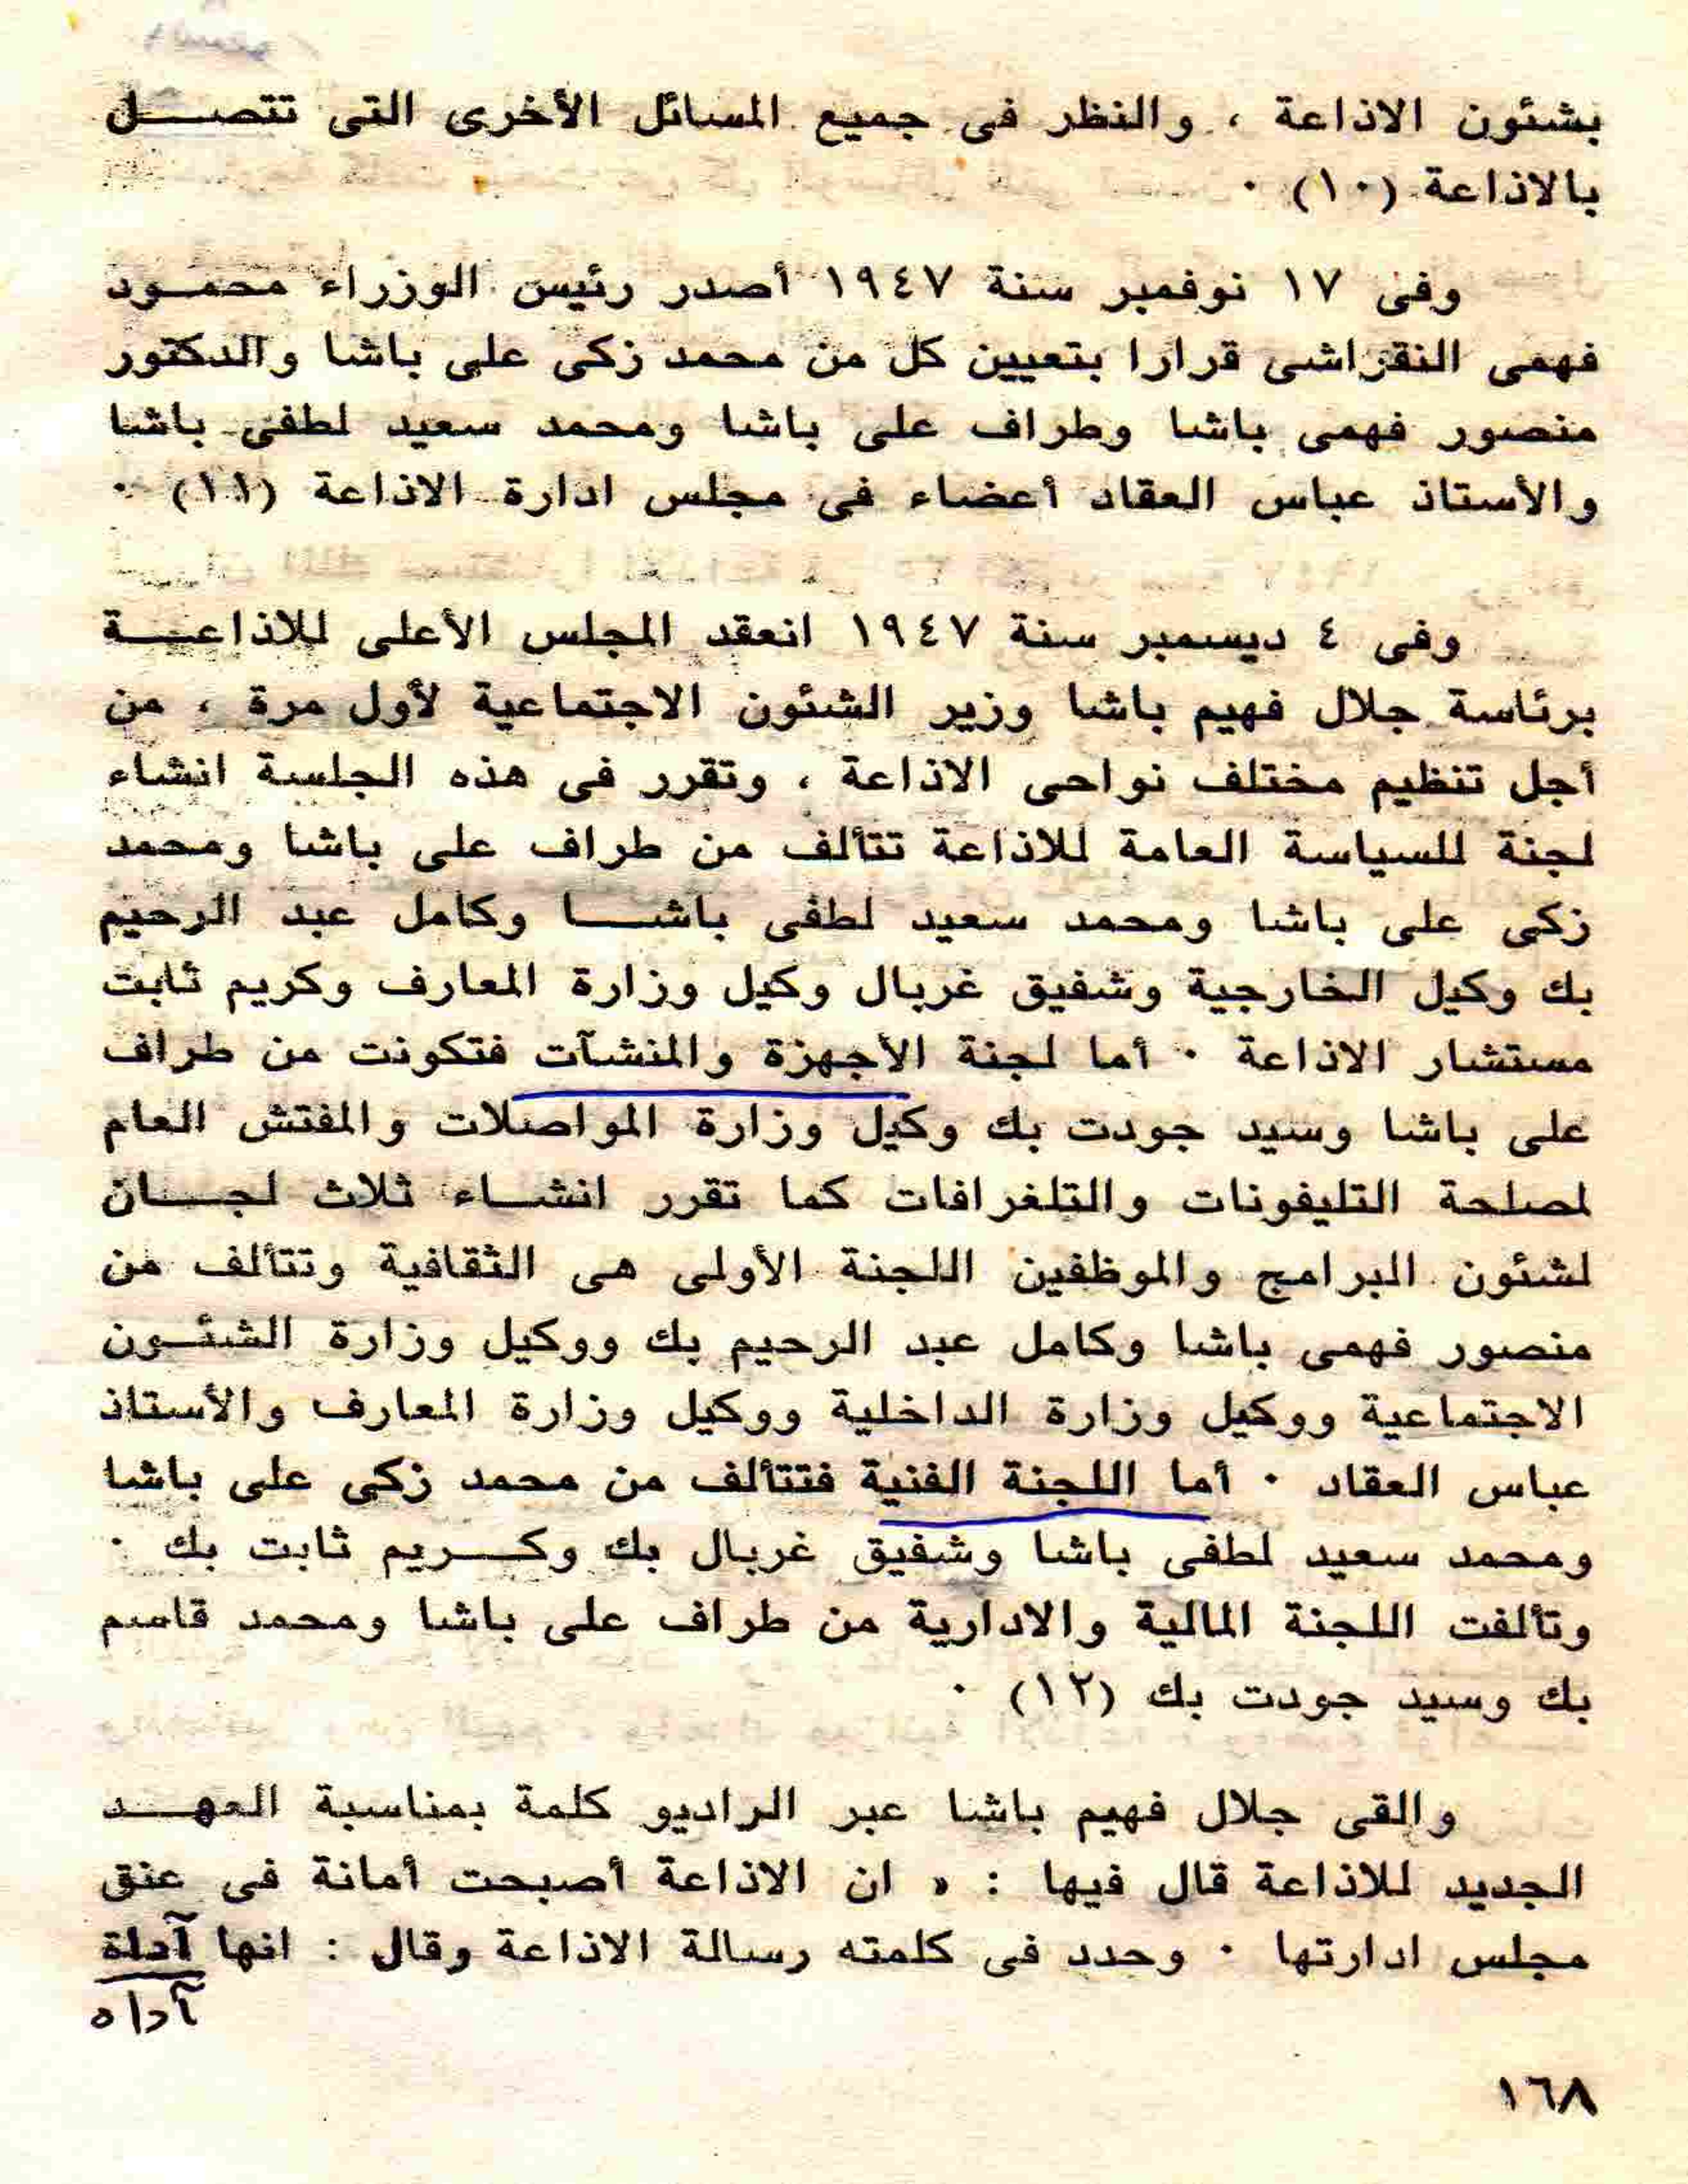 بشئون الاذاعة ، والنظر فى جميع المسائل الأخرى التى تتصـــل
بالاذاعة (١٠) ٠
وفى ١٧ نوفمبر سنة ١٩٤٧ أصدر رئيس الوزراء محمـود
فهمى النقراشى قرارا بتعيين كل من محمد زكى على باشا والدكتور
منصور فهمى باشا وطراف على باشا ومحمد سعيد لطفى باشا
والأستاذ عباس العقاد أعضاء فى مجلس ادارة الاذاعة (١١) ٠
وفى ٤ ديسمبر سنة ١٩٤٧ انعقد المجلس الأعلى للاذاعـــة
برئاسة جلال فهيم باشا وزير الشئون الاجتماعية لأول مرة ، من
أجل تنظيم مختلف نواحى الاذاعة ، وتقرر فى هذه الجلسة انشاء
لجنة للسياسة العامة للاذاعة تتألف من طراف على باشا ومحمد
زكى على باشا ومحمد سعيد لطفى باشـــا وكامل عبد الرحيم
بك وكيل الخارجية وشفيق غربال وكيل وزارة المعارف وكريم ثابت
مستشار الاذاعة ٠ أما لجنة الأجهزة والمنشآت فتكونت من طراف
على باشا وسيد جودت بك وكيل وزارة المواصلات والمفتش العام
لمصلحة التليفونات والتلغرافات كما تقرر انشـاء ثلاث لجـــان
لشئون البرامج والموظفين اللجنة الأولى هى الثقافية وتتألف من
منصور فهمى باشا وكامل عبد الرحيم بك ووكيل وزارة الشئـون
الاجتماعية ووكيل وزارة الداخلية ووكيل وزارة المعارف والأستاذ
عباس العقاد ٠ أما اللجنة الفنية فتتألف من محمد زكى على باشا
ومحمد سعيد لطفى باشا وشفيق غربال بك وكـــريم ثابت بك ٠
وتألفت اللجنة المالية والادارية من طراف على باشا ومحمد قاسم
بك وسيد جودت بك (١٢) ٠
والقى جلال فهيم باشا عبر الراديو كلمة بمناسبة العهـــد
الجديد للاذاعة قال فيها : « ان الاذاعة أصبحت أمانة فى عنق
مجلس ادارتها ٠ وحدد فى كلمته رسالة الاذاعة وقال : انها آداة
آداه
١٦٨